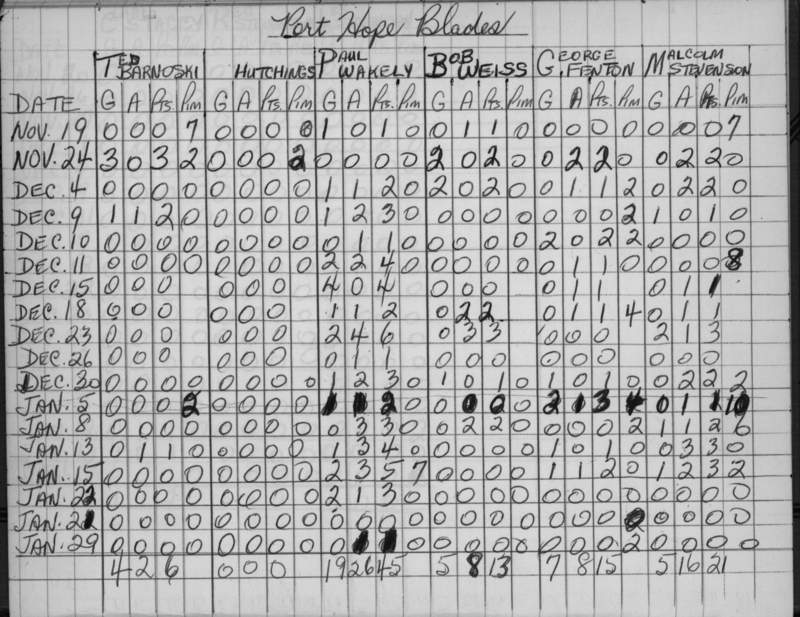 Port Hope Blades
TED BARNOSKI HUTCHINGS PAUL WAKELY BOB WEISS GEORGE FENTON MALCOLM STEVENSON
DATE G A Pts. Pim G A Pts. Pim G A Pts. Pim G A Pts. Pim G A Pts. Pim G A Pts. Pim
NOV. 19 0 0 0 7 0 0 0 0 1 0 1 0 0 1 1 0 0 0 0 0 0 0 0 7
NOV. 24 3 0 3 2 0 0 0 2 0 0 0 0 2 0 2 0 0 2 2 0 0 2 2 0
DEC. 4 0 0 0 0 0 0 0 0 1 1 2 0 2 0 2 0 0 1 1 2 0 2 2 0
DEC. 9 1 1 2 0 0 0 0 0 1 2 3 0 0 0 0 0 0 0 0 2 1 0 1 0
DEC. 10 0 0 0 0 0 0 0 0 0 1 1 0 0 0 0 0 2 0 2 2 0 0 0 0
DEC. 11 0 0 0 0 0 0 0 0 2 2 4 0 0 0 0 0 0 1 1 0 0 0 0 8
DEC. 15 0 0 0 0 0 0 4 0 4 0 0 0 0 1 1 0 1 1
DEC. 18 0 0 0 0 0 0 1 1 2 0 2 2 0 1 1 4 0 1 1
DEC. 23 0 0 0 0 0 0 2 4 6 0 3 3 0 0 0 2 1 3
DEC. 26 0 0 0 0 0 0 0 1 1 0 0 0 0 0 0 0 0 0
DEC. 30 0 0 0 0 0 0 0 0 1 2 3 0 1 0 1 0 1 0 1 0 0 2 2 2
JAN. 5 0 0 0 2 0 0 0 0 1 1 2 0 0 0 0 0 2 1 3 4 0 1 1 10
JAN. 8 0 0 0 0 0 0 0 0 0 3 3 0 0 2 2 0 0 0 0 2 1 1 2 6
JAN. 13 0 1 1 0 0 0 0 0 1 3 4 0 0 0 0 0 1 0 1 0 0 3 3 0
JAN. 15 0 0 0 0 0 0 0 0 2 3 5 7 0 0 0 0 1 1 2 0 1 2 3 2
JAN. 22 0 0 0 0 0 0 0 0 2 1 3 0 0 0 0 0 0 0 0 0 0 0 0 0
JAN. 21 0 0 0 0 0 0 0 0 0 0 0 0 0 0 0 0 0 0 0 0 0 0 0 0
JAN. 29 0 0 0 0 0 0 0 0 0 1 1 0 0 0 0 0 0 0 0 2 0 0 0 0
4 2 6 0 0 0 19 26 45 5 8 13 7 8 15 5 16 21